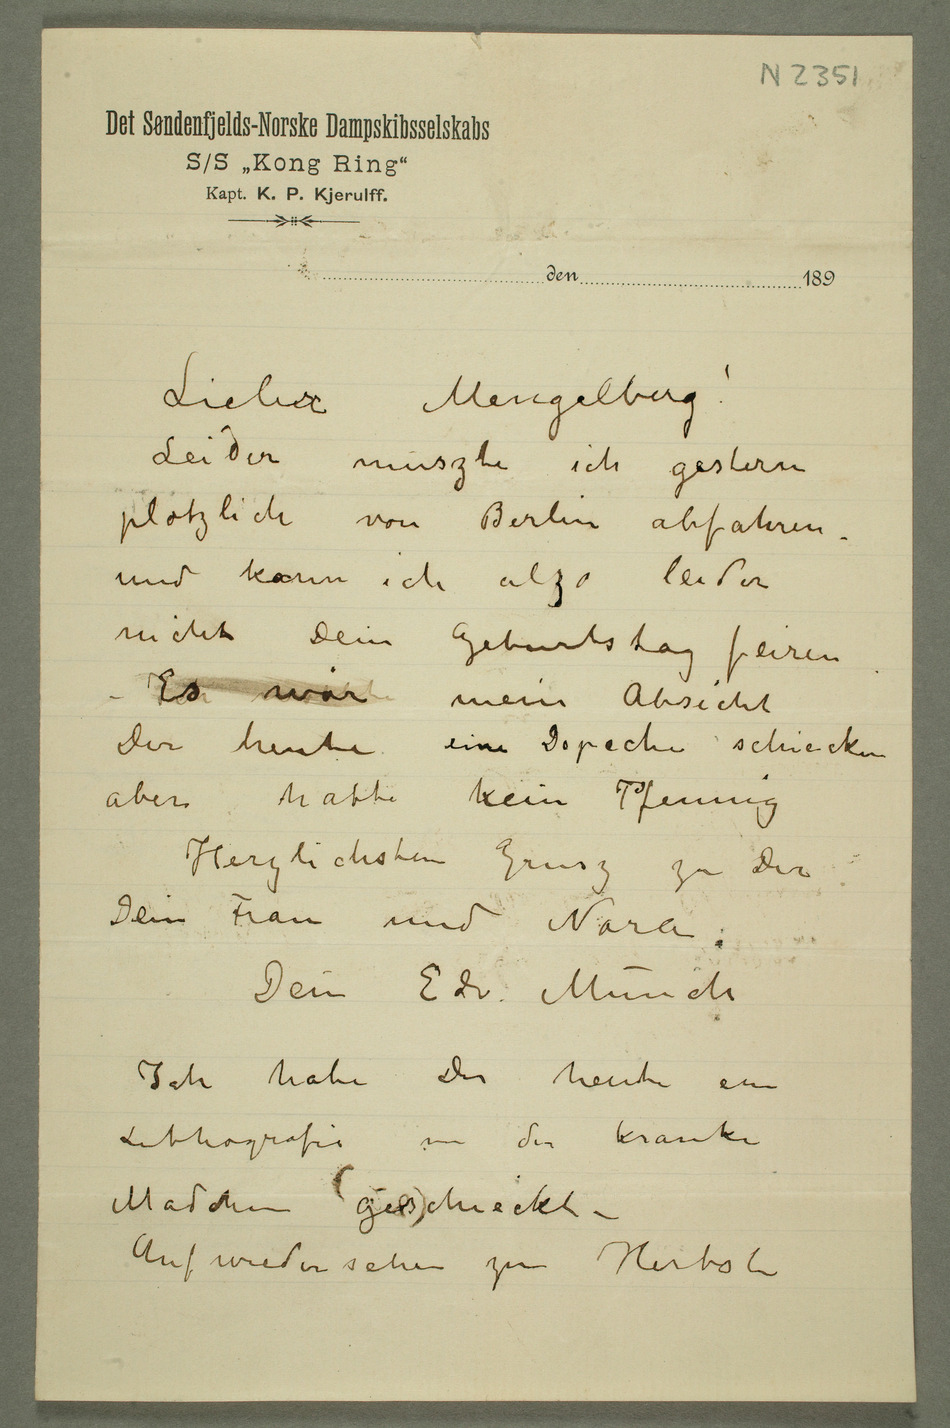 N 2351
Det Søndenfjelds-Norske Dampskibsselskabs
S/S „Kong Ring“
Kapt. K. P. Kjerulff.
den 189
Lieber Mengelberg!
Leider muszte ich gestern
plotzlich von Berlin abfahren –
und kann ich alzo leider
nicht Dein Geburtstag feiren
– Es war mein Absicht
Dir heute eine Depeche schiecken
aber hatte kein Pfennig
Herzlichsten Grusz zu Dir
Dein Frau und Nora.
Dein Edv. Munch
Ich habe Dir heute ein
Lithografie von der kranke
Madchen geschieckt –
Auf wiedersehen zum Herbste